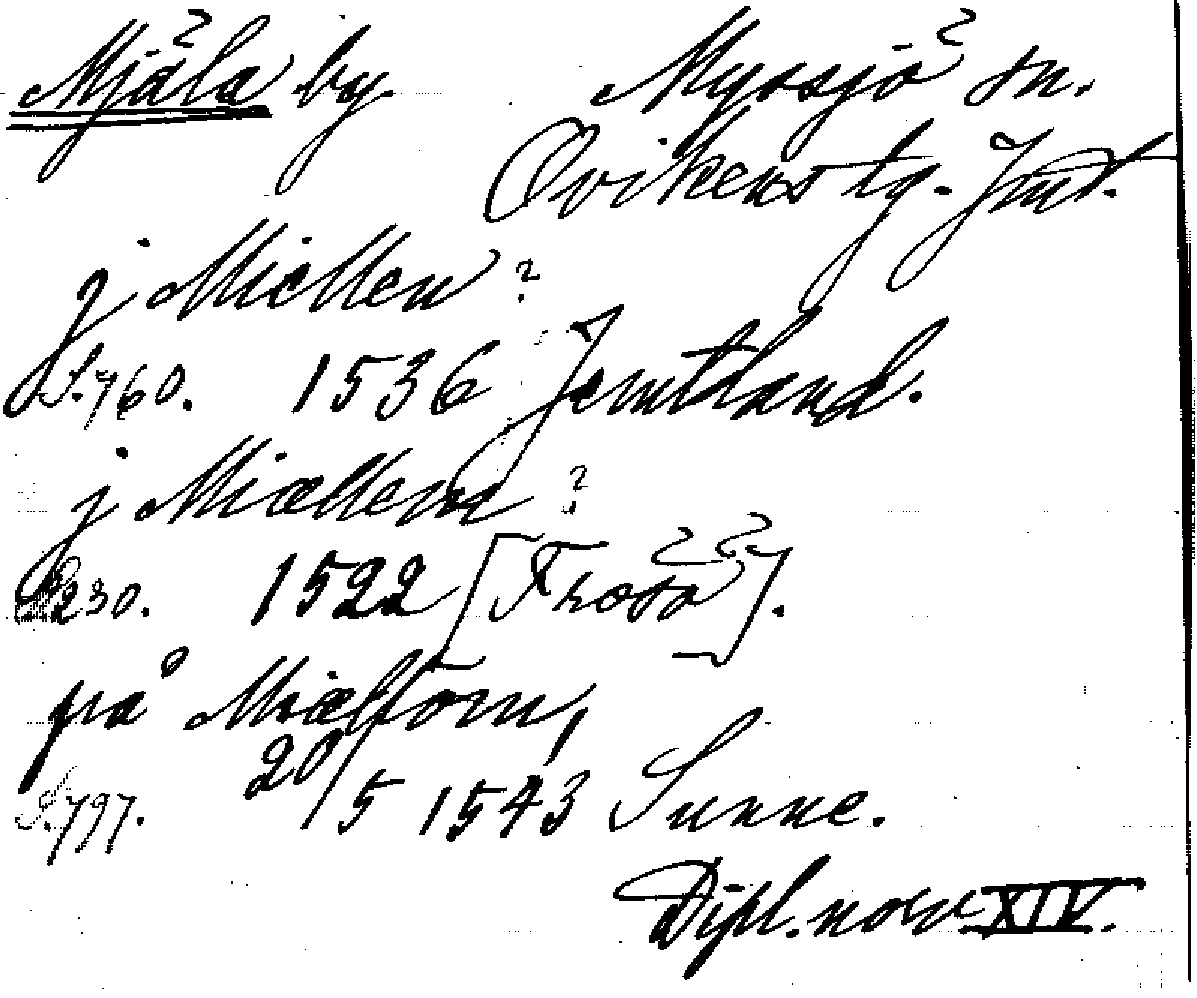 Mjäla by. Myssjö sn.
Ovikens tg. Jmt.
j Miellen ?
S. 760. 1536 Jemtland.
j Miællem ?
S. 230. 1522 [Frösö].
på Miællom,
S. 797. 20/5 1543 Sunne.
Dipl. norv XIV.